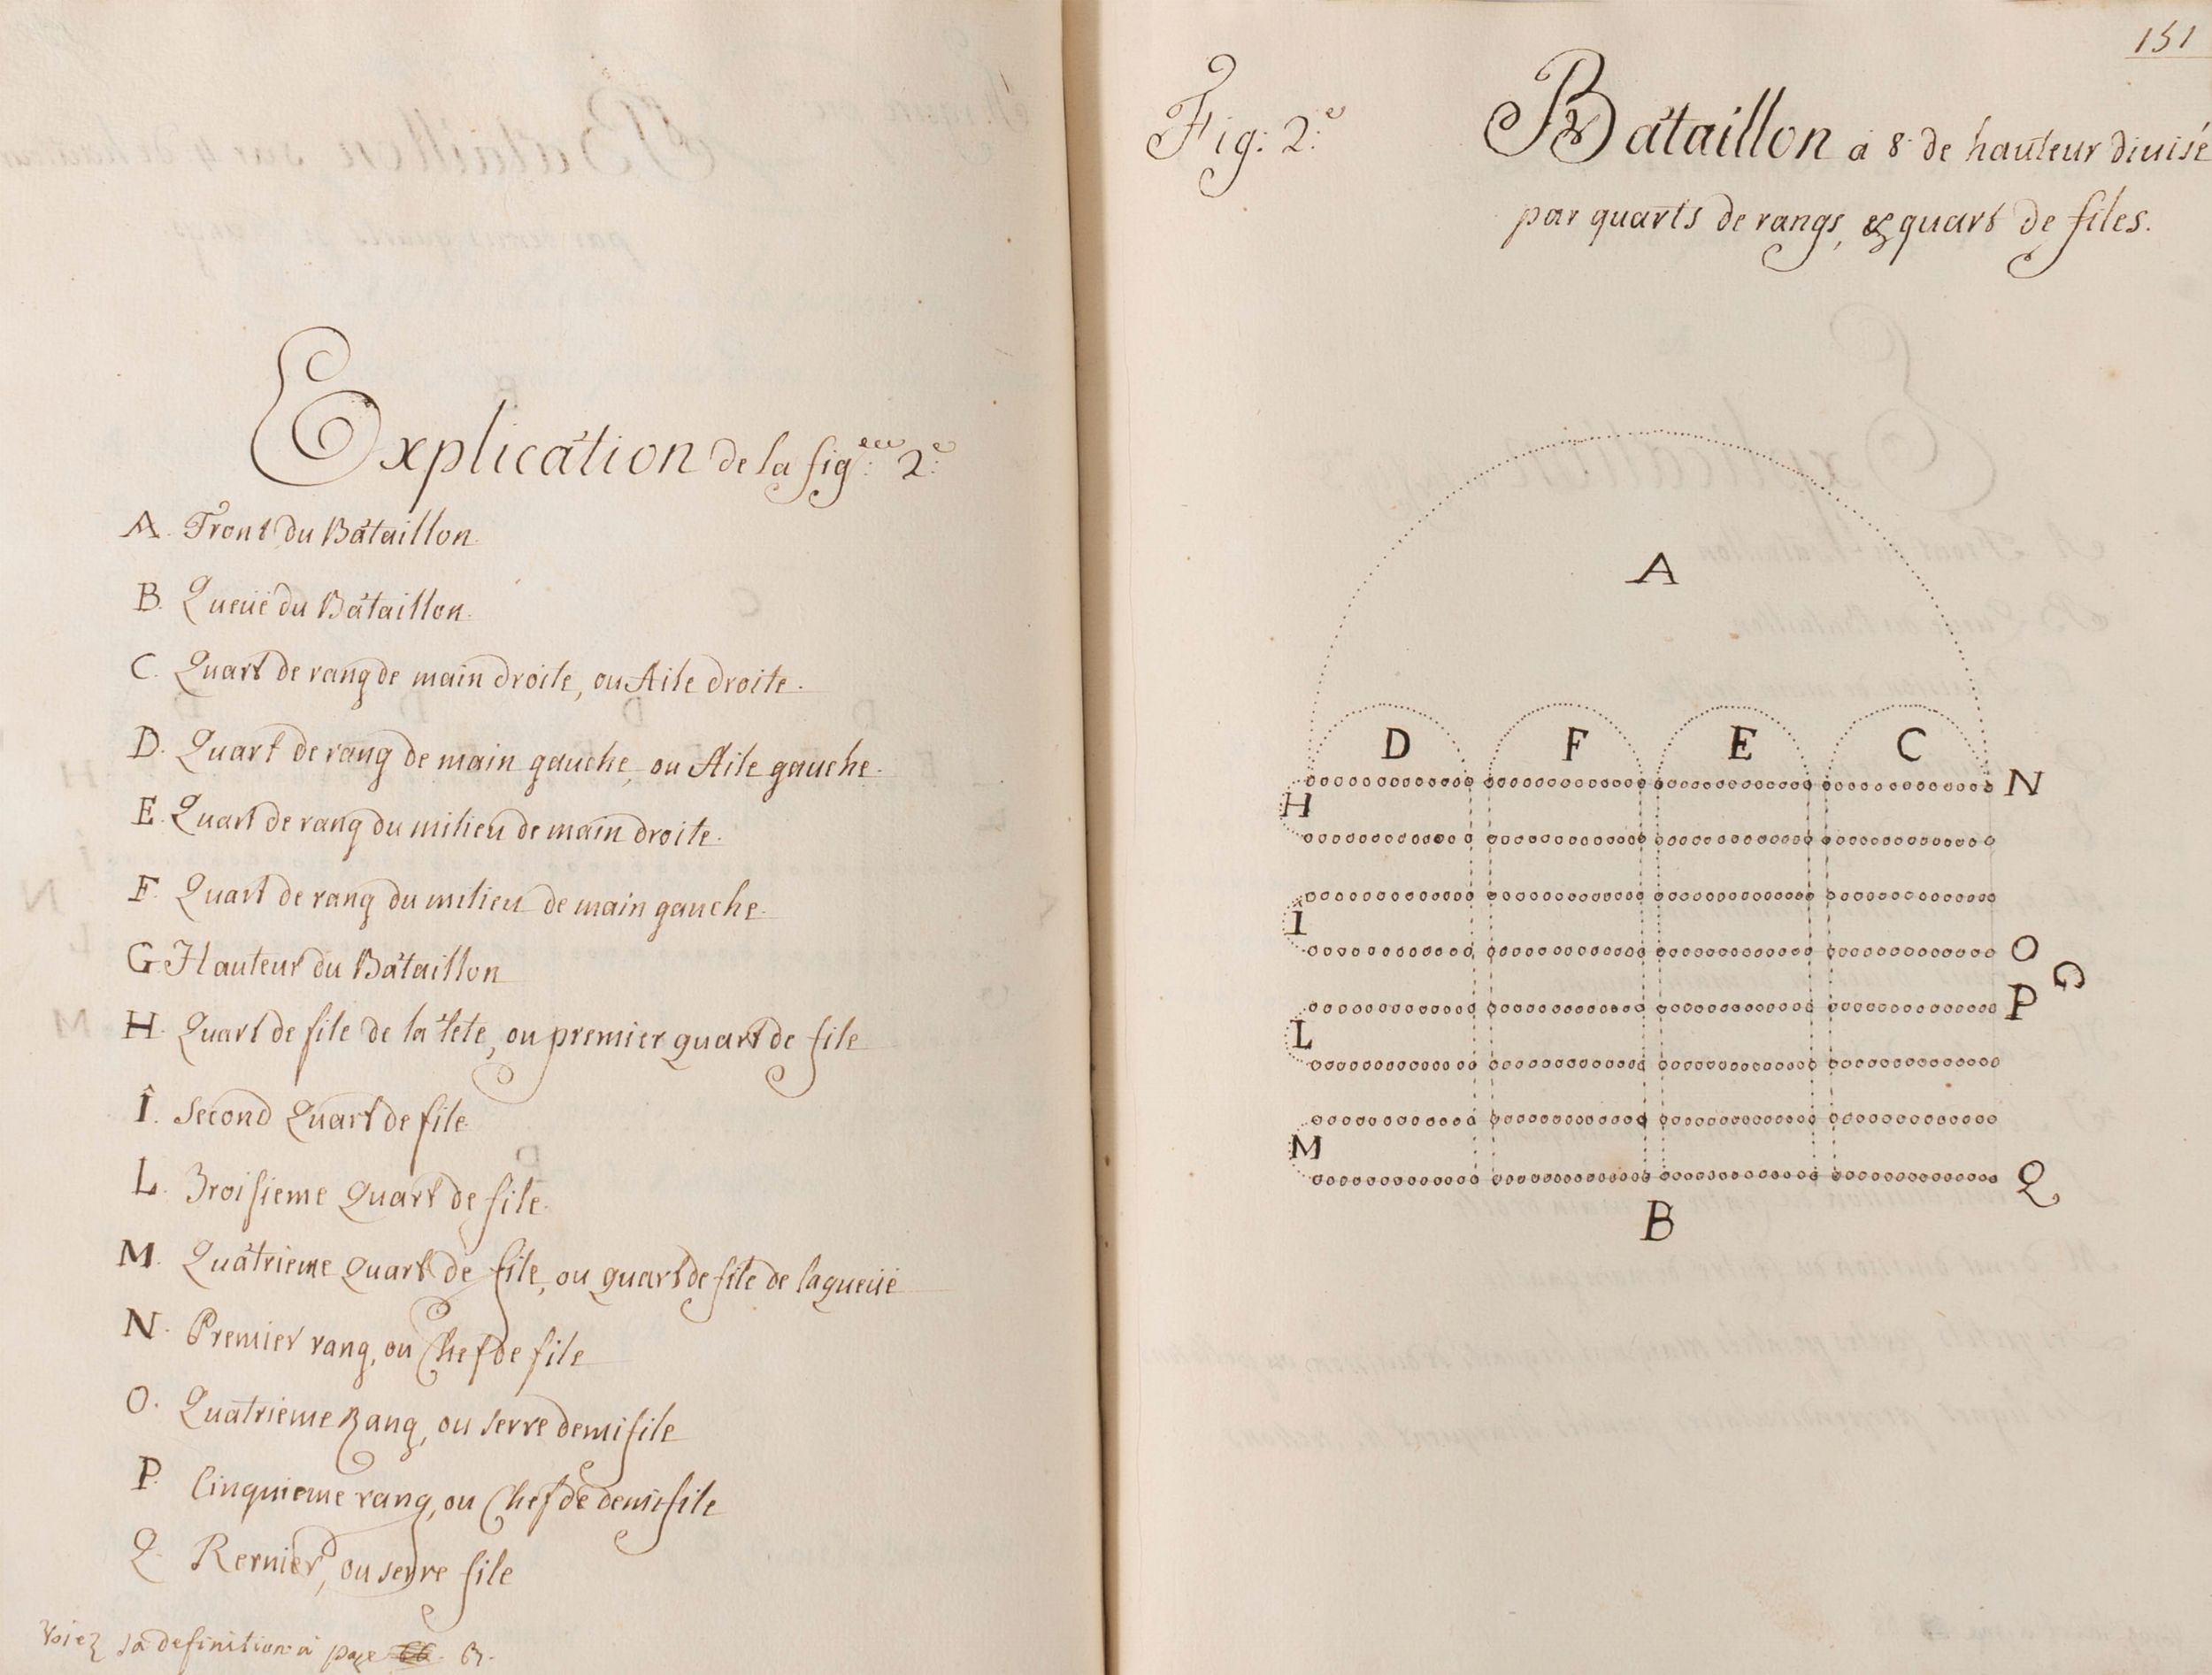 Explication de la fig.eme 2.e
A. Front du Bataillon
B. Queüe du Bataillon.
C. Quart de rang de main droite, ou Aile droite.
D. Quart de rang de main gauche, ou Aile gauche.
E. Quart de rang du milieu de main droite.
F. Quart de rang du milieu de main gauche.
G. Hauteur du Bataillon
H. Quart de file de la tete, ou premier quart de file
Î. Second Quart de file.
L. Troisieme Quart de file.
M. Quatrieme Quart de file, ou quart de file de la queüe
N. Premier rang, ou Chef de file
O. Quatrieme Rang, ou serre demi file
P. Cinquieme rang, ou Chef de demi file
Q. Rernier, ou serre file
Voiez sa definition a page
151
Fig: 2.e
Bataillon a 8 de hauteur divisé
par quarts de rangs, & quart de files.
A
D F E C
N
H
I
O
G
P
L
M
Q
B